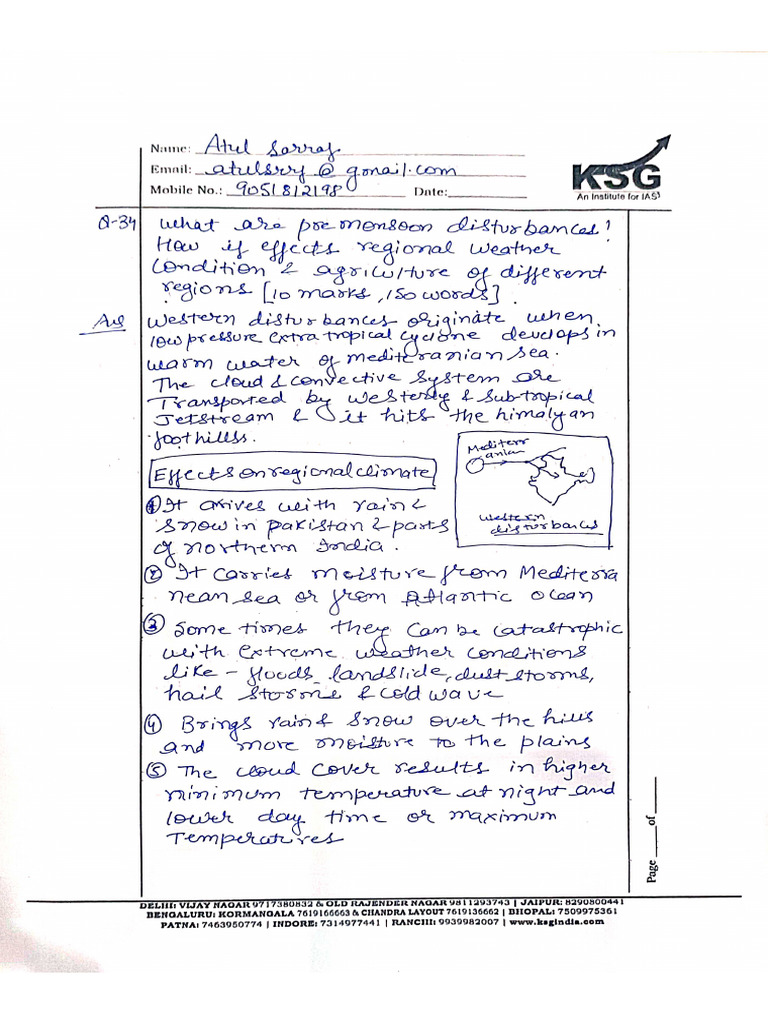 Name: Atul Sarraf
Email: atulsrrf@gmail.com
Mobile No.: 9051812198 Date:
KSG
An Institute for IAS
Q-34 What are premonsoon disturbances?
How it effects regional weather
condition & agriculture of different
regions [10 marks, 150 words].
Ans Western disturbances originate when
low pressure extra tropical cyclone develops in
warm water of mediteranian sea.
The cloud & convective system are
Transported by westerly & subtropical
Jetstream & it hits the himalyan
foothillss.
Effects on regional climate
Mediterr
anian
Western
disturbances
① It arives with rain &
snow in pakistan & parts
of northern India.
② It carries moisture from Mediterra
nean sea or from Atlantic Ocean
③ Some times they can be catastrophic
with extreme weather conditions
like - floods, landslide, dust storms,
hail storms & cold wave
④ Brings rain & snow over the hills
and more moisture to the plains
⑤ The cloud cover results in higher
minimum temperature at night and
lower day time or maximum
Temperatures
Page ____ of ____
DELHI: VIJAY NAGAR 9717380832 & OLD RAJENDER NAGAR 9811293743 | JAIPUR: 8290800441
BENGALURU: KORMANGALA 7619166663 & CHANDRA LAYOUT 7619136662 | BHOPAL: 7509975361
PATNA: 7463950774 | INDORE: 7314977441 | RANCHI: 9939982007 | www.ksgindia.com